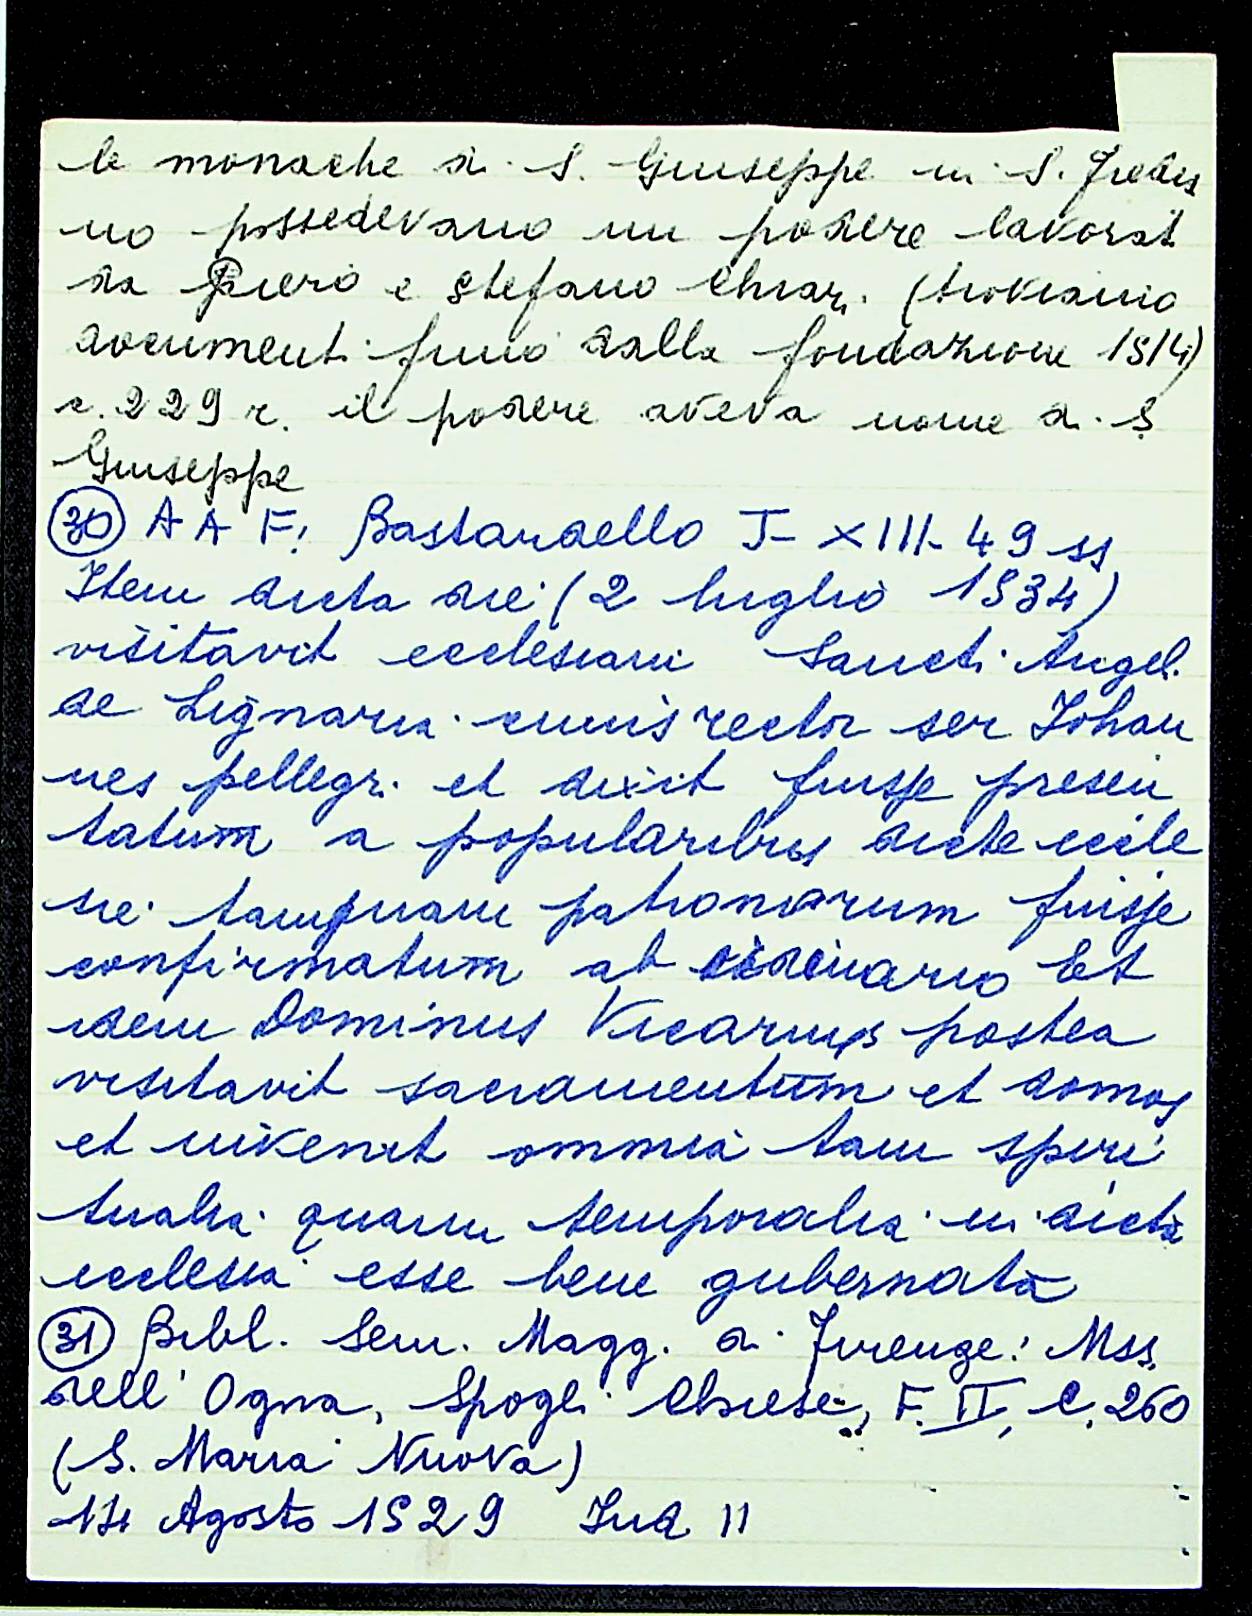 le monache di S. Giuseppe in S. Fredia
no possedevano un podere lavorat
da Piero e Stefano Chiari (troviamo
documenti fino dalla fondazione 1514)
c. 229 r. il podere aveva nome di S
Giuseppe
30 A A F: Bastardello I- XIII- 49 ss
Item dicta die (2 luglio 1534)
visitavit ecclesiam Sancti Angeli
de Lignaria cuius rector ser Johan
nes pellegri et dixit fuisse presen
tatum a popularibus dicte eccle
sie tamquam patronorum fuisse
confirmatum ab ordinario Et
idem Dominus Vicarius postea
visitavit sacramentum et domos
et invenit omnia tam spiri
tualia quam temporalia in dicta
ecclesia esse bene gubernata
31 Bibl. Sem. Magg. di Firenze: Mss.
dell'Ogna, Spogli Chiese, F. II, C. 260
(S. Maria Nuova)
14 Agosto 1529 Ind 11